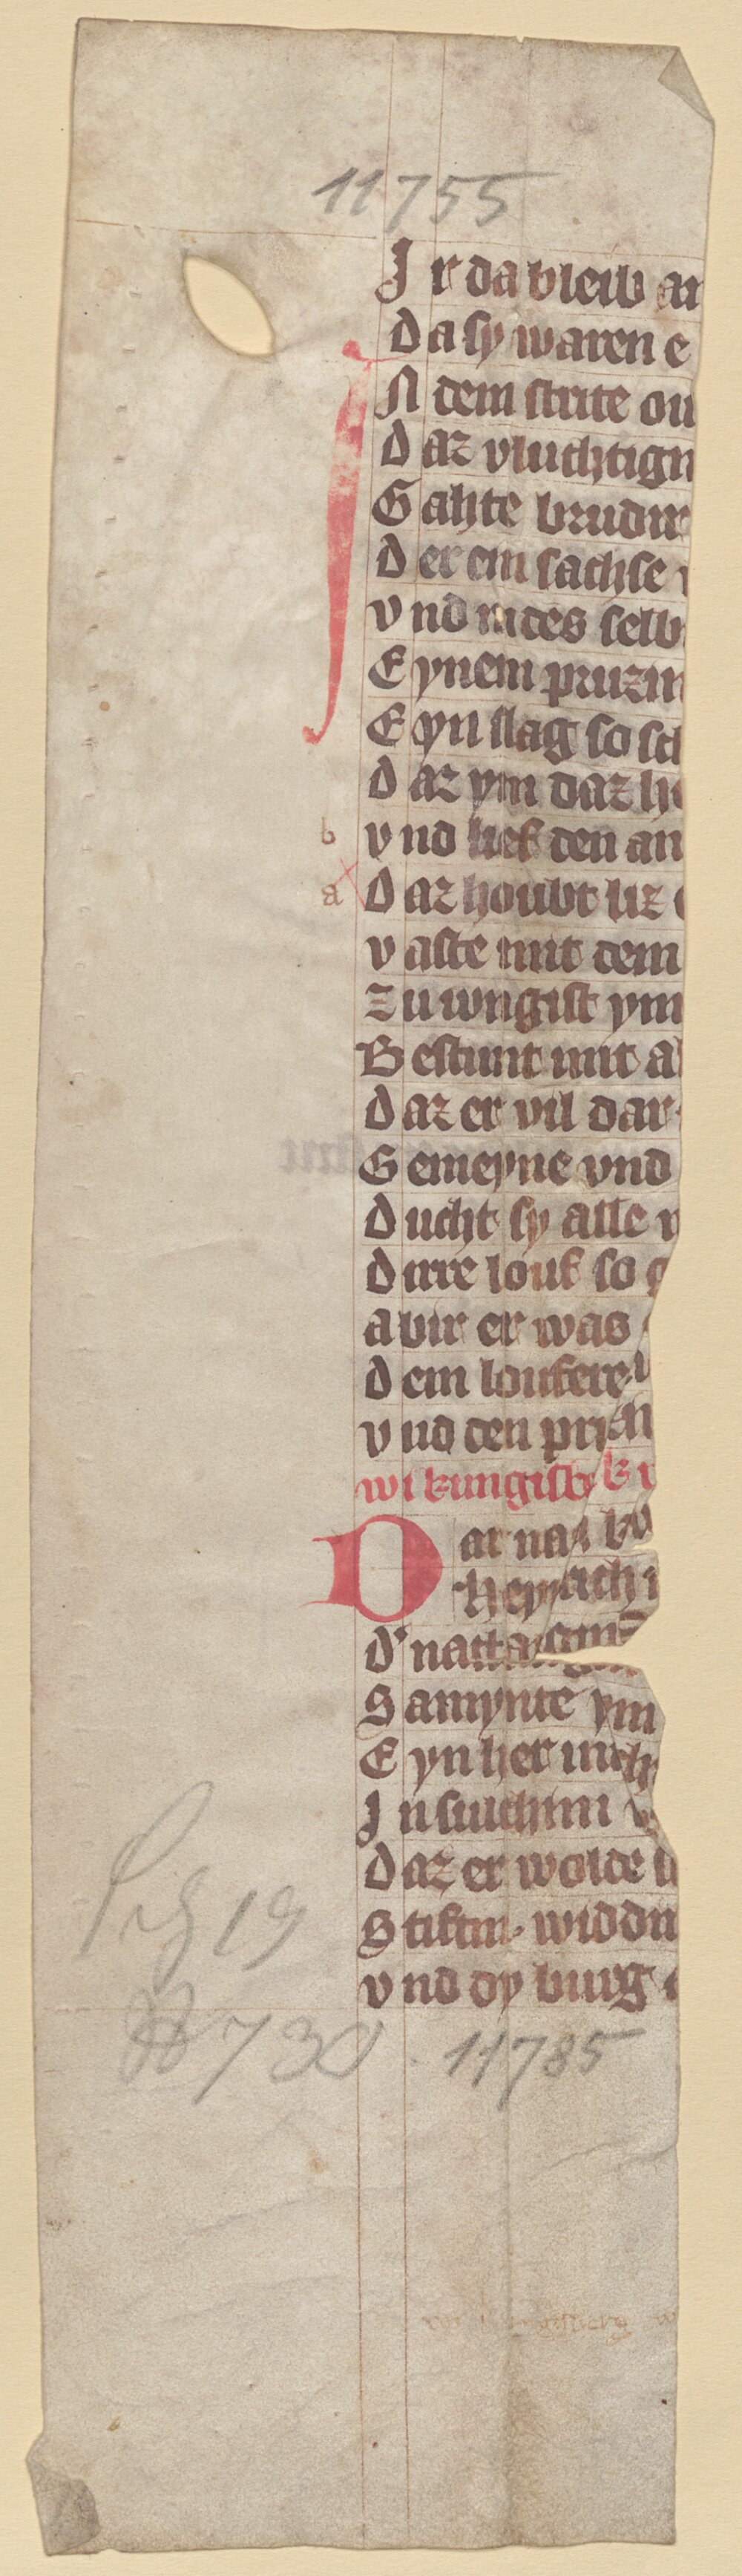 11755
Ir da bleib an
Da sy waren e
In dem strite ou
Daz vluchtign
Gahte brudir
Der ein sachse
Vnd rites selb
Eynem pruzin
Eyn slag so sch
Daz ym daz h
b Vnd lief den an
a Daz houbt liz
Vaste mit dem
Zu iungist ym
Bestunt mit a
Daz er vil dar
Gemeyne vnd
Ducht sy alle v
Dirre louf so g
Abir er was
Dem loufere
Vnd den pri
wi kungisb k
Dar nach
Heynrich
D' nattangin
Samynte ym
Eyn her mich
In sulchim
Daz er wolde
Stiftin widdir
Vnd dy burg
19
730 11785